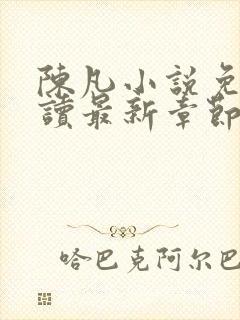 陳凡小說免
讀最新章節
哈巴克阿尔巴